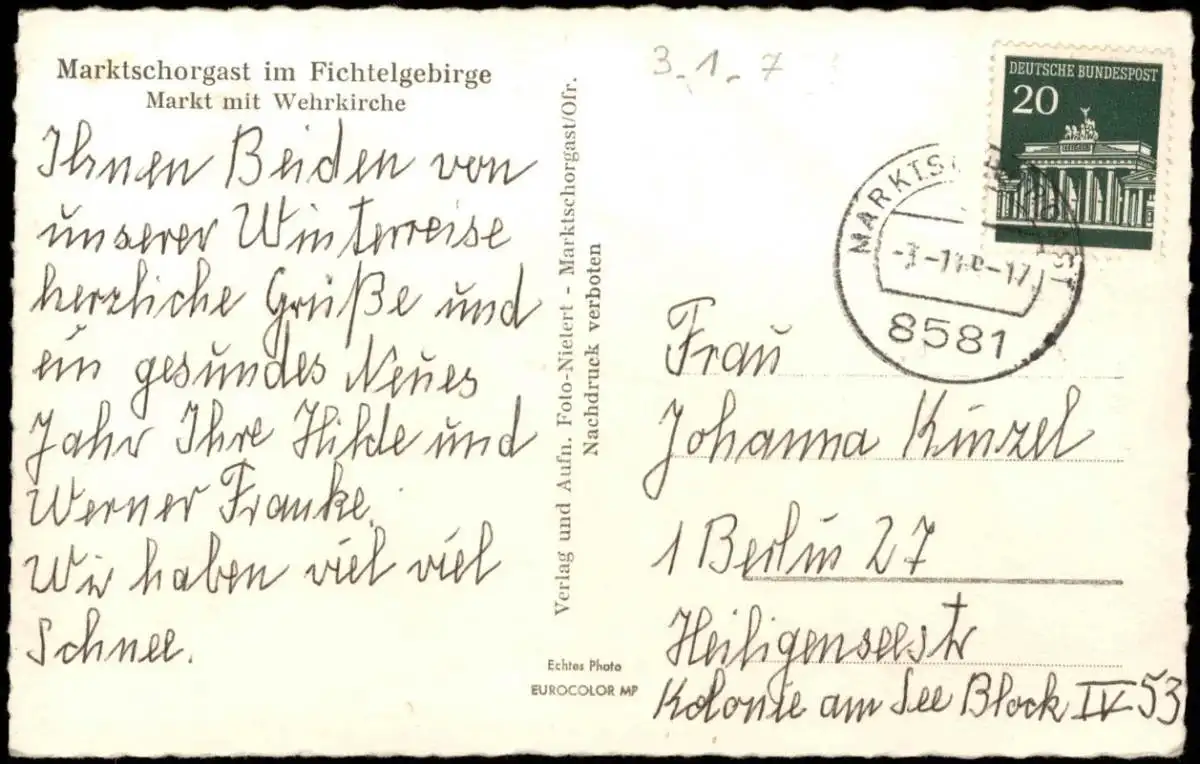 Marktschorgast im Fichtelgebirge
Markt mit Wehrkirche
Ihnen Beiden von
unserer Winterreise
herzliche Grüße und
ein gesundes Neues
Jahr Ihre Hilde und
Werner Franke.
Wir haben viel viel
Schnee.
Verlag und Aufn. Foto-Nietert - Marktschorgast/Ofr.
Nachdruck verboten
Echtes Photo
EUROCOLOR MP
3.1.7
DEUTSCHE BUNDESPOST
20
8581
Frau
Johanna Künzel
1 Berlin 27
Heiligenseestr
Kolonie am See Block IV 53